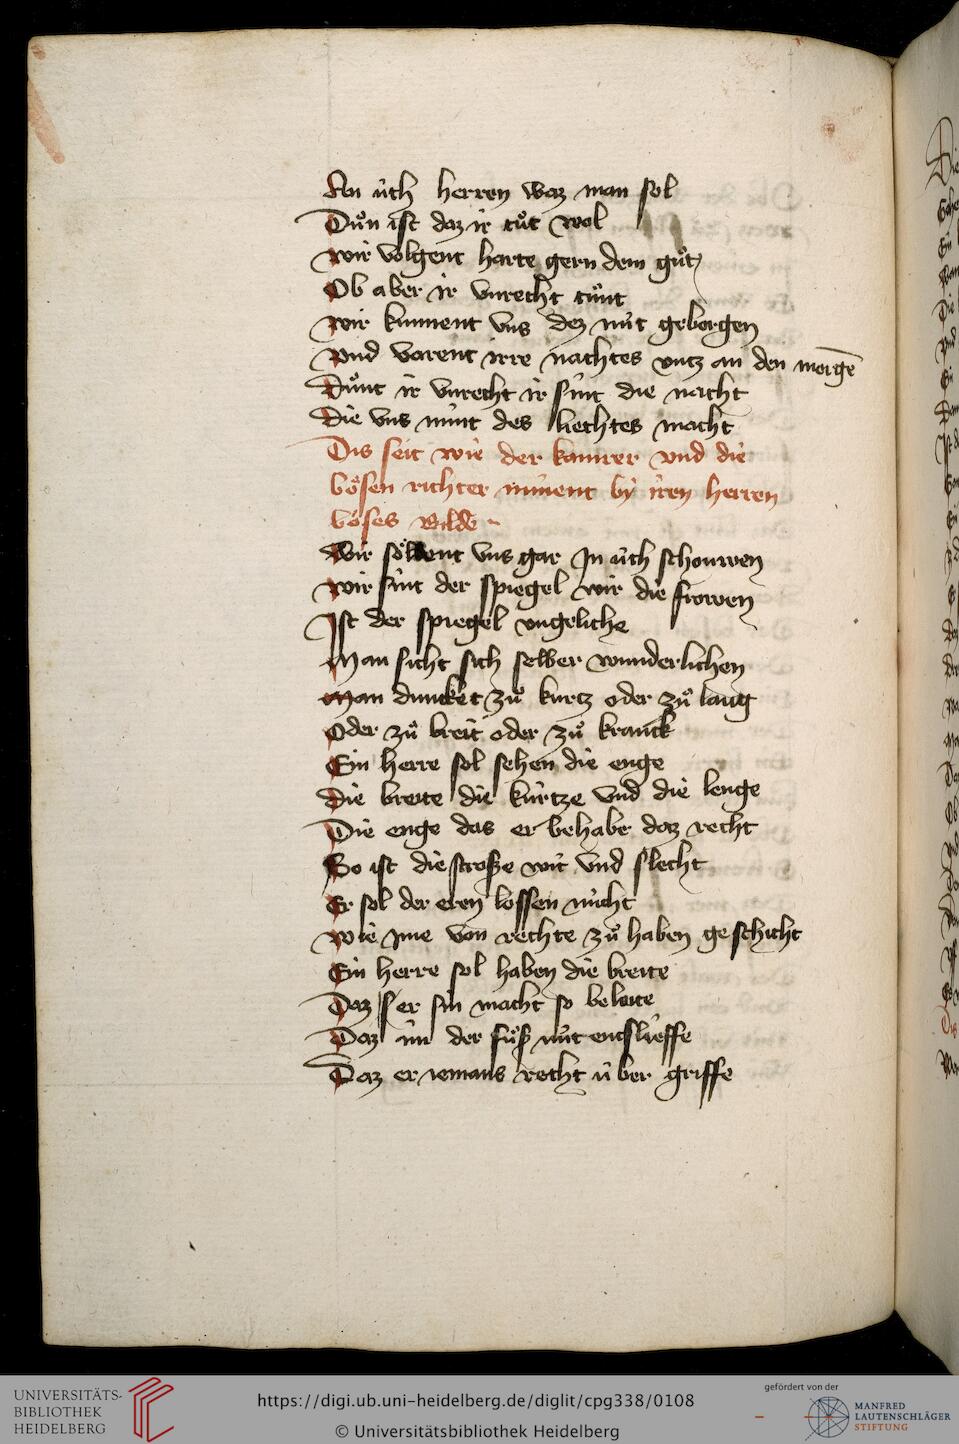 An úch herren waz man sol
Důn ist daz ir tůt wol
wir volgent harte gern dem gůt
Ob aber ir vnrecht tůnt
wir kunnent vns dez nút geborgen
vnd varent irre nachtes vntz an den morgē
Důnt ir vnrecht ir sint die nacht
die vns nimt des liechtes macht
Dis seit wie der kamrer vnd die
bösen richter niment by iren herren
böses Bilde
Wir söllent vns gar In úch schouwen
wir sint der spiegel wir die frowen
Ist der spiegel vngeliche
Man sicht sich selber wunderlichen
man duncket zů kurtz oder zů lang
Oder zů breit oder zů kranck
Ein herre sol sehen die enge
die breite die kúrtze vnd die lenge
Die enge das er behabe daz recht
So ist die strosse wit vnd slecht
Er sol der eren lossen nicht
wie ime von rechte zů haben geschicht
Ein herre sol haben die breite
Daz er sin macht so beleite
Daz im der fůß nút entslieffe
Daz er iemans recht úber griffe
UNIVERSITÄTS-
BIBLIOTHEK
HEIDELBERG
https://digi.ub.uni-heidelberg.de/diglit/cpg338/0108
© Universitätsbibliothek Heidelberg
gefördert von der
MANFRED
LAUTENSCHLÄGER
STIFTUNG